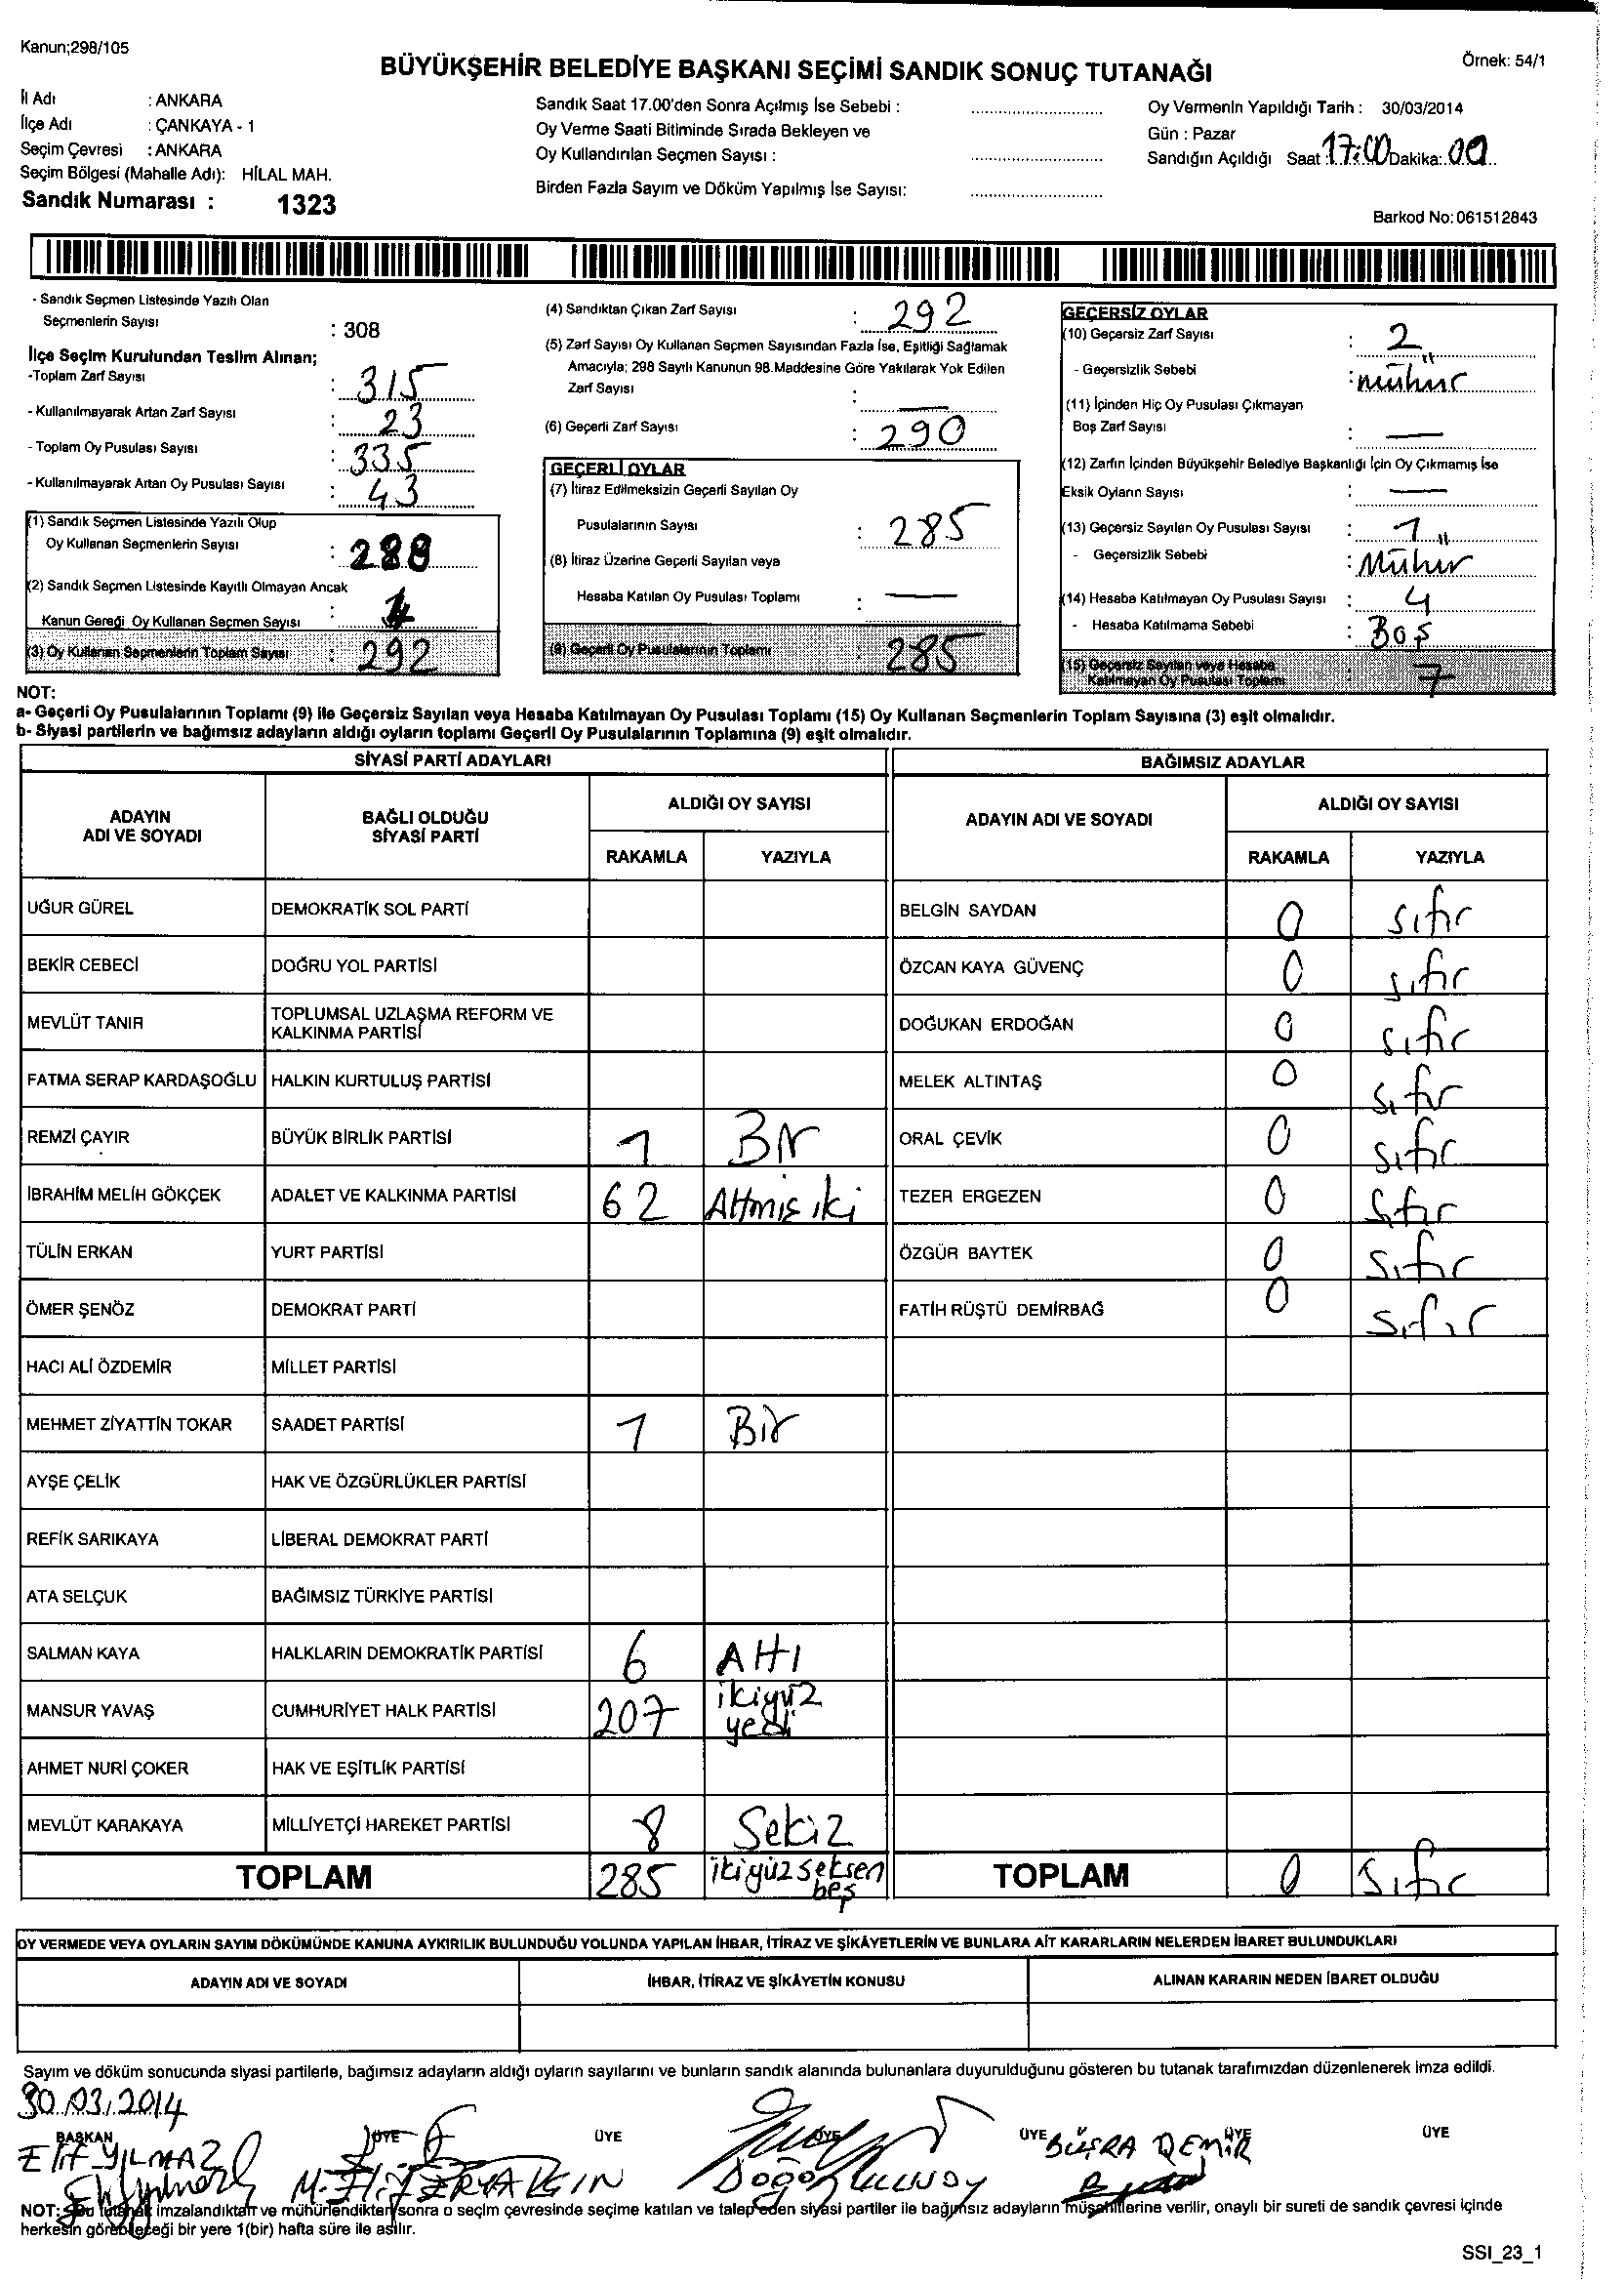 Kanun;298/105
BÜYÜKŞEHİR BELEDİYE BAŞKANI SEÇİMİ SANDIK SONUÇ TUTANAĞI
Örnek: 54/1
İl Adı : ANKARA
İlçe Adı : ÇANKAYA - 1
Seçim Çevresi : ANKARA
Seçim Bölgesi (Mahalle Adı): HİLAL MAH.
Sandık Numarası : 1323
Sandık Saat 17.00'den Sonra Açılmış İse Sebebi :
Oy Verme Saati Bitiminde Sırada Bekleyen ve
Oy Kullandırılan Seçmen Sayısı :
Birden Fazla Sayım ve Döküm Yapılmış İse Sayısı:
Oy Vermenin Yapıldığı Tarih : 30/03/2014
Gün : Pazar
Sandığın Açıldığı Saat : 17:00 Dakika: 00
Barkod No: 061512843
- Sandık Seçmen Listesinde Yazılı Olan
Seçmenlerin Sayısı : 308
İlçe Seçim Kurulundan Teslim Alınan;
-Toplam Zarf Sayısı : 315
- Kullanılmayarak Artan Zarf Sayısı : 23
- Toplam Oy Pusulası Sayısı : 335
- Kullanılmayarak Artan Oy Pusulası Sayısı : 43
(1) Sandık Seçmen Listesinde Yazılı Olup
Oy Kullanan Seçmenlerin Sayısı : 288
(2) Sandık Seçmen Listesinde Kayıtlı Olmayan Ancak
Kanun Gereği Oy Kullanan Seçmen Sayısı : 4
(3) Oy Kullanan Seçmenlerin Toplam Sayısı : 292
(4) Sandıktan Çıkan Zarf Sayısı : 292
(5) Zarf Sayısı Oy Kullanan Seçmen Sayısından Fazla İse, Eşitliği Sağlamak
Amacıyla; 298 Sayılı Kanunun 98.Maddesine Göre Yakılarak Yok Edilen
Zarf Sayısı : —
(6) Geçerli Zarf Sayısı : 290
GEÇERLİ OYLAR
(7) İtiraz Edilmeksizin Geçerli Sayılan Oy
Pusulalarının Sayısı : 285
(8) İtiraz Üzerine Geçerli Sayılan veya
Hesaba Katılan Oy Pusulası Toplamı : —
(9) Geçerli Oy Pusulalarının Toplamı : 285
GEÇERSİZ OYLAR
(10) Geçersiz Zarf Sayısı : 2
- Geçersizlik Sebebi : mühür
(11) İçinden Hiç Oy Pusulası Çıkmayan
Boş Zarf Sayısı : —
(12) Zarfın İçinden Büyükşehir Belediye Başkanlığı İçin Oy Çıkmamış İse
Eksik Oyların Sayısı : —
(13) Geçersiz Sayılan Oy Pusulası Sayısı : 1
- Geçersizlik Sebebi : Mühür
(14) Hesaba Katılmayan Oy Pusulası Sayısı : 4
- Hesaba Katılmama Sebebi : Boş
(15) Geçersiz Sayılan veya Hesaba
Katılmayan Oy Pusulası Toplamı : 7
NOT:
a- Geçerli Oy Pusulalarının Toplamı (9) ile Geçersiz Sayılan veya Hesaba Katılmayan Oy Pusulası Toplamı (15) Oy Kullanan Seçmenlerin Toplam Sayısına (3) eşit olmalıdır.
b- Siyasi partilerin ve bağımsız adayların aldığı oyların toplamı Geçerli Oy Pusulalarının Toplamına (9) eşit olmalıdır.
SİYASİ PARTİ ADAYLARI
ADAYIN ADI VE SOYADI
BAĞLI OLDUĞU SİYASİ PARTİ
ALDIĞI OY SAYISI
RAKAMLA YAZIYLA
UĞUR GÜREL DEMOKRATİK SOL PARTİ
BEKİR CEBECİ DOĞRU YOL PARTİSİ
MEVLÜT TANIR TOPLUMSAL UZLAŞMA REFORM VE
KALKINMA PARTİSİ
FATMA SERAP KARDAŞOĞLU HALKIN KURTULUŞ PARTİSİ
REMZİ ÇAYIR BÜYÜK BİRLİK PARTİSİ 1 Bir
İBRAHİM MELİH GÖKÇEK ADALET VE KALKINMA PARTİSİ 62 Altmış iki
TÜLİN ERKAN YURT PARTİSİ
ÖMER ŞENÖZ DEMOKRAT PARTİ
HACI ALİ ÖZDEMİR MİLLET PARTİSİ
MEHMET ZİYATTİN TOKAR SAADET PARTİSİ 1 Bir
AYŞE ÇELİK HAK VE ÖZGÜRLÜKLER PARTİSİ
REFİK SARIKAYA LİBERAL DEMOKRAT PARTİ
ATA SELÇUK BAĞIMSIZ TÜRKİYE PARTİSİ
SALMAN KAYA HALKLARIN DEMOKRATİK PARTİSİ 6 Altı
MANSUR YAVAŞ CUMHURİYET HALK PARTİSİ 207 ikiyüz
yedi
AHMET NURİ ÇOKER HAK VE EŞİTLİK PARTİSİ
MEVLÜT KARAKAYA MİLLİYETÇİ HAREKET PARTİSİ 8 Sekiz
TOPLAM 285 ikiyüz seksen
beş
BAĞIMSIZ ADAYLAR
ADAYIN ADI VE SOYADI
ALDIĞI OY SAYISI
RAKAMLA YAZIYLA
BELGİN SAYDAN 0 sıfır
ÖZCAN KAYA GÜVENÇ 0 sıfır
DOĞUKAN ERDOĞAN 0 sıfır
MELEK ALTINTAŞ 0 sıfır
ORAL ÇEVİK 0 sıfır
TEZER ERGEZEN 0 sıfır
ÖZGÜR BAYTEK 0 sıfır
FATİH RÜŞTÜ DEMİRBAĞ 0 sıfır
TOPLAM 0 sıfır
OY VERMEDE VEYA OYLARIN SAYIM DÖKÜMÜNDE KANUNA AYKIRILIK BULUNDUĞU YOLUNDA YAPILAN İHBAR, İTİRAZ VE ŞİKÂYETLERİN VE BUNLARA AİT KARARLARIN NELERDEN İBARET BULUNDUKLARI
ADAYIN ADI VE SOYADI İHBAR, İTİRAZ VE ŞİKÂYETİN KONUSU ALINAN KARARIN NEDEN İBARET OLDUĞU
Sayım ve döküm sonucunda siyasi partilerle, bağımsız adayların aldığı oyların sayılarını ve bunların sandık alanında bulunanlara duyurulduğunu gösteren bu tutanak tarafımızdan düzenlenerek imza edildi.
30.03.2014
BAŞKAN ÜYE ÜYE ÜYE ÜYE ÜYE ÜYE
ELİF YILMAZ BÜŞRA DEMİR
NOT: Bu tutanak imzalandıktan ve mühürlendikten sonra o seçim çevresinde seçime katılan ve talep eden siyasi partiler ile bağımsız adayların müşahitlerine verilir, onaylı bir sureti de sandık çevresi içinde
herkesin görebileceği bir yere 1(bir) hafta süre ile asılır.
SSI_23_1